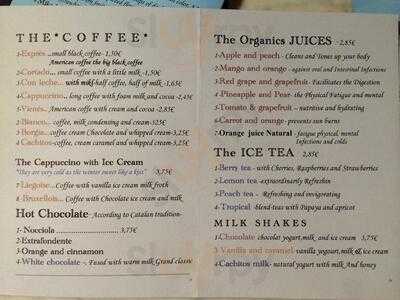 THE*COFFEE*
1-Expres ..small black coffee- 1,50€
American coffee the big black coffee
2-Cortado... small coffee with a little milk -1,50€
3-Con leche... with milk(-half coffee, half of milk -1,65€
4-Cappuccino... long coffee with foam milk and cocoa -2,45€
5-Vienés... American coffee with cream and cocoa -2,85€
2-Bianco... coffee, milk condensing and cream-325€
3-Borgia... coffee cream Chocolate and whipped cream-3,25€
4-Cachitos-coffee, cream caramel and whipped cream-3,25€
The Cappuccino with Ice Cream
"They are very cold as the winter sweet like a kiss" 3,75€
7-Liegoise... Coffee with vanilla ice cream milk froth
8-Bruxellois... Coffee with Chocolate ice cream and milk
Hot Chocolate -According to Catalan tradition-
1- Nocciola ........................... 3,75€
2-Extrafondente
3-Orange and cinnamon
4-White chocolate -. Fused with warm milk Grand classic
The Organics JUICES -2,85€
1-Apple and peach - Cleans and Tones up your body
2-Mango and orange - against oral and Intestinal Infections
3-Red grape and grapefruit - Facilitates the Digestion
4-Pineapple and Pear- the Physical Fatigue and Mental
5-Tomato & grapefruit - nutritive and hydrating
6-Carrot and orange- prevents sun burns
7-Orange juice Natural - fatigue physical, mental
Infections and colds
The ICE TEA - 2,85€
1-Berry tea - with Cherries, Raspberries and Strawberries
2-Lemon tea -extraordinarily Refreshin
3-Peach tea - Refreshing and invigorating
4-Tropical -blend-teas with Papaya and apricot
MILK SHAKES
1-Chocolate chocolat yogurt, milk, and ice cream 3,75€
3 Vanilla and caramel-vanilla yogourt, milk & ice cream
4-Cachitos milk- natural yogurt with milk And honey